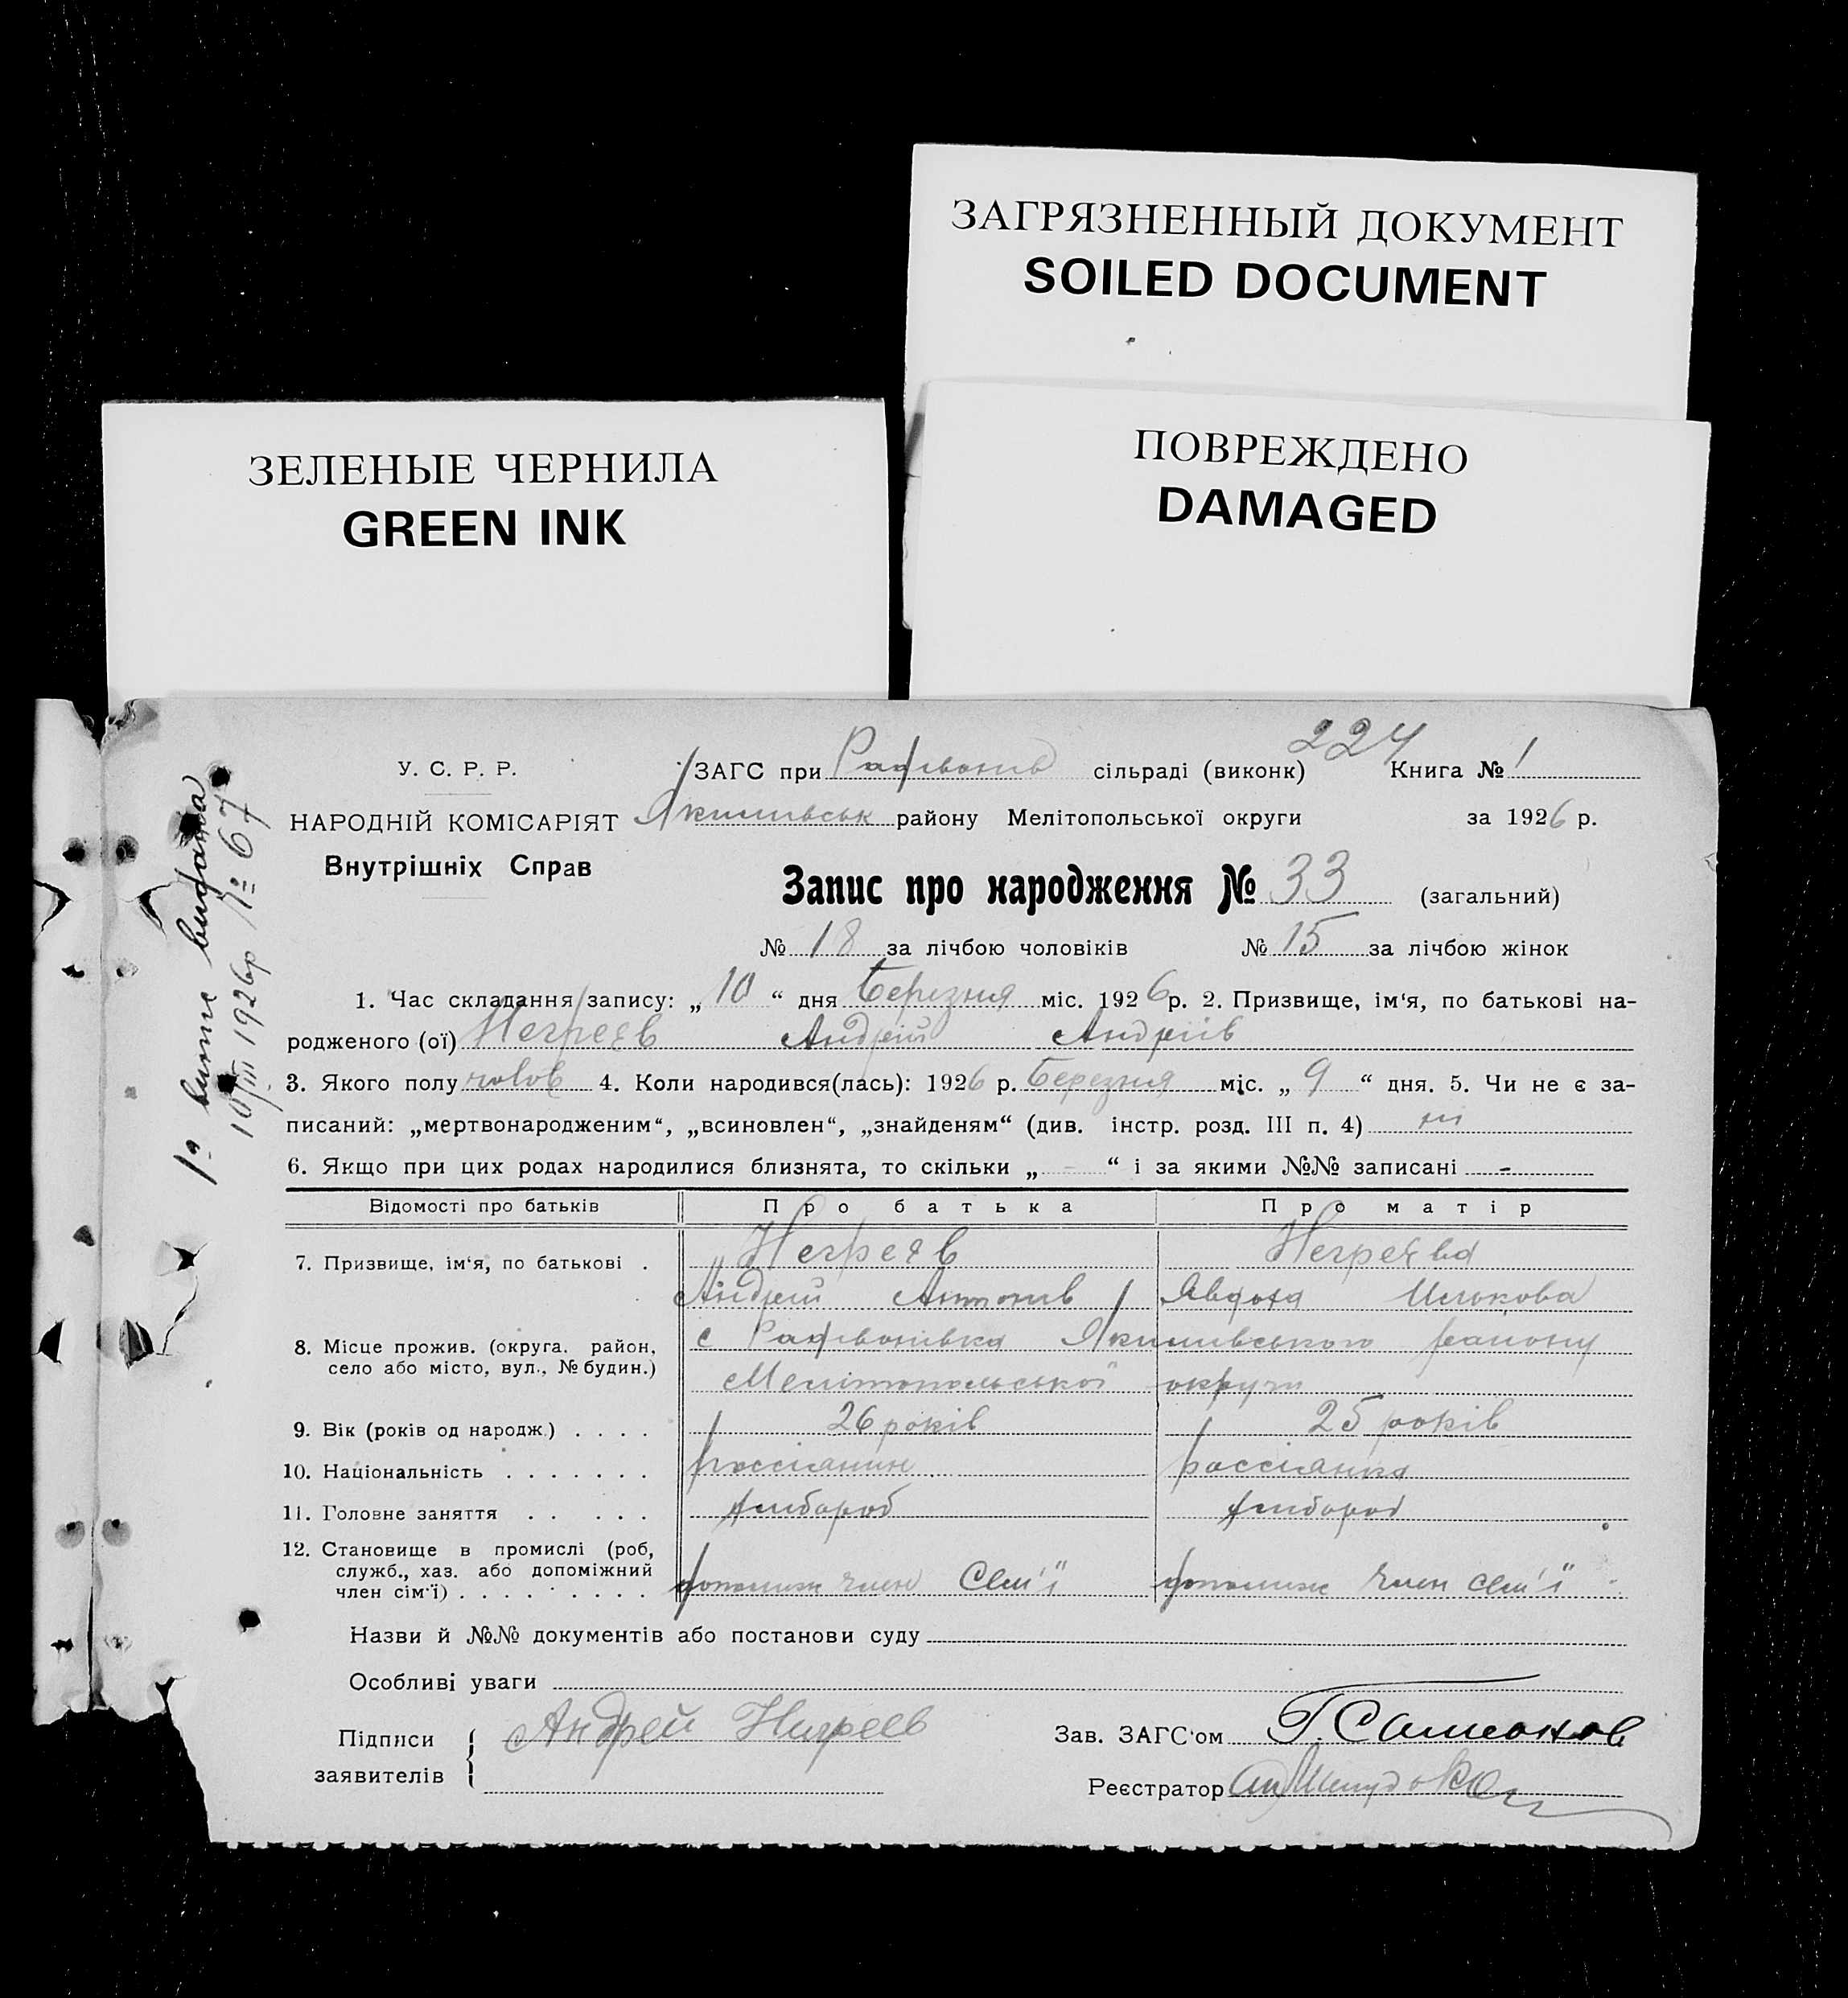 ЗАГРЯЗНЕННЫЙ ДОКУМЕНТ
SOILED DOCUMENT
ЗЕЛЕНЫЕ ЧЕРНИЛА
GREEN INK
ПОВРЕЖДЕНО
DAMAGED
224
У. С. Р. Р.
ЗАГС при сільраді (виконк) Книга № 1
НАРОДНІЙ КОМІСАРІЯТ
Внутрішніх Справ
Якимівськ району Мелітопольської округи за 1926 р.
Запис про народження № 33 (загальний)
№ 18 за лічбою чоловіків № 15 за лічбою жінок
1. Час складання запису: „ 10 “ дня Березня міс. 1926 р. 2. Призвище, ім'я, по батькові на-
родженого (ої) Негреєв Андрій Андріїв
3. Якого полу чолов 4. Коли народився(лась): 1926 р. Березня міс. „ 9 “ дня. 5. Чи не є за-
писаний: „мертвонародженим“, „всиновлен“, „знайденям“ (див. інстр. розд. III п. 4) ні
6. Якщо при цих родах народилися близнята, то скільки „ - “ і за якими №№ записані -
Відомості про батьків Про батька Про матір
7. Призвище, ім'я, по батькові . Негреєв Негреєва
Андрій Антонів Явдоха Илькова
8. Місце прожив. (округа. район,
село або місто, вул., № будин.)
с Якимівського району
Мелітопольської округи
9. Вік (років од народж.) . . . . 26 років 25 років
10. Національність . . . . . . . россіанин россіанка
11. Головне заняття . . . . . хлібороб хлібороб
12. Становище в промислі (роб,
служб., хаз. або допоміжний
член сім'ї) . . . . . . . . .
допоміж член сем'ї допоміж член сем'ї
Назви й №№ документів або постанови суду
Особливі уваги
Підписи
заявителів
Андрей Нигреев
Зав. ЗАГС'ом
Реєстратор
1а випис видана
10/III 1926р № 67